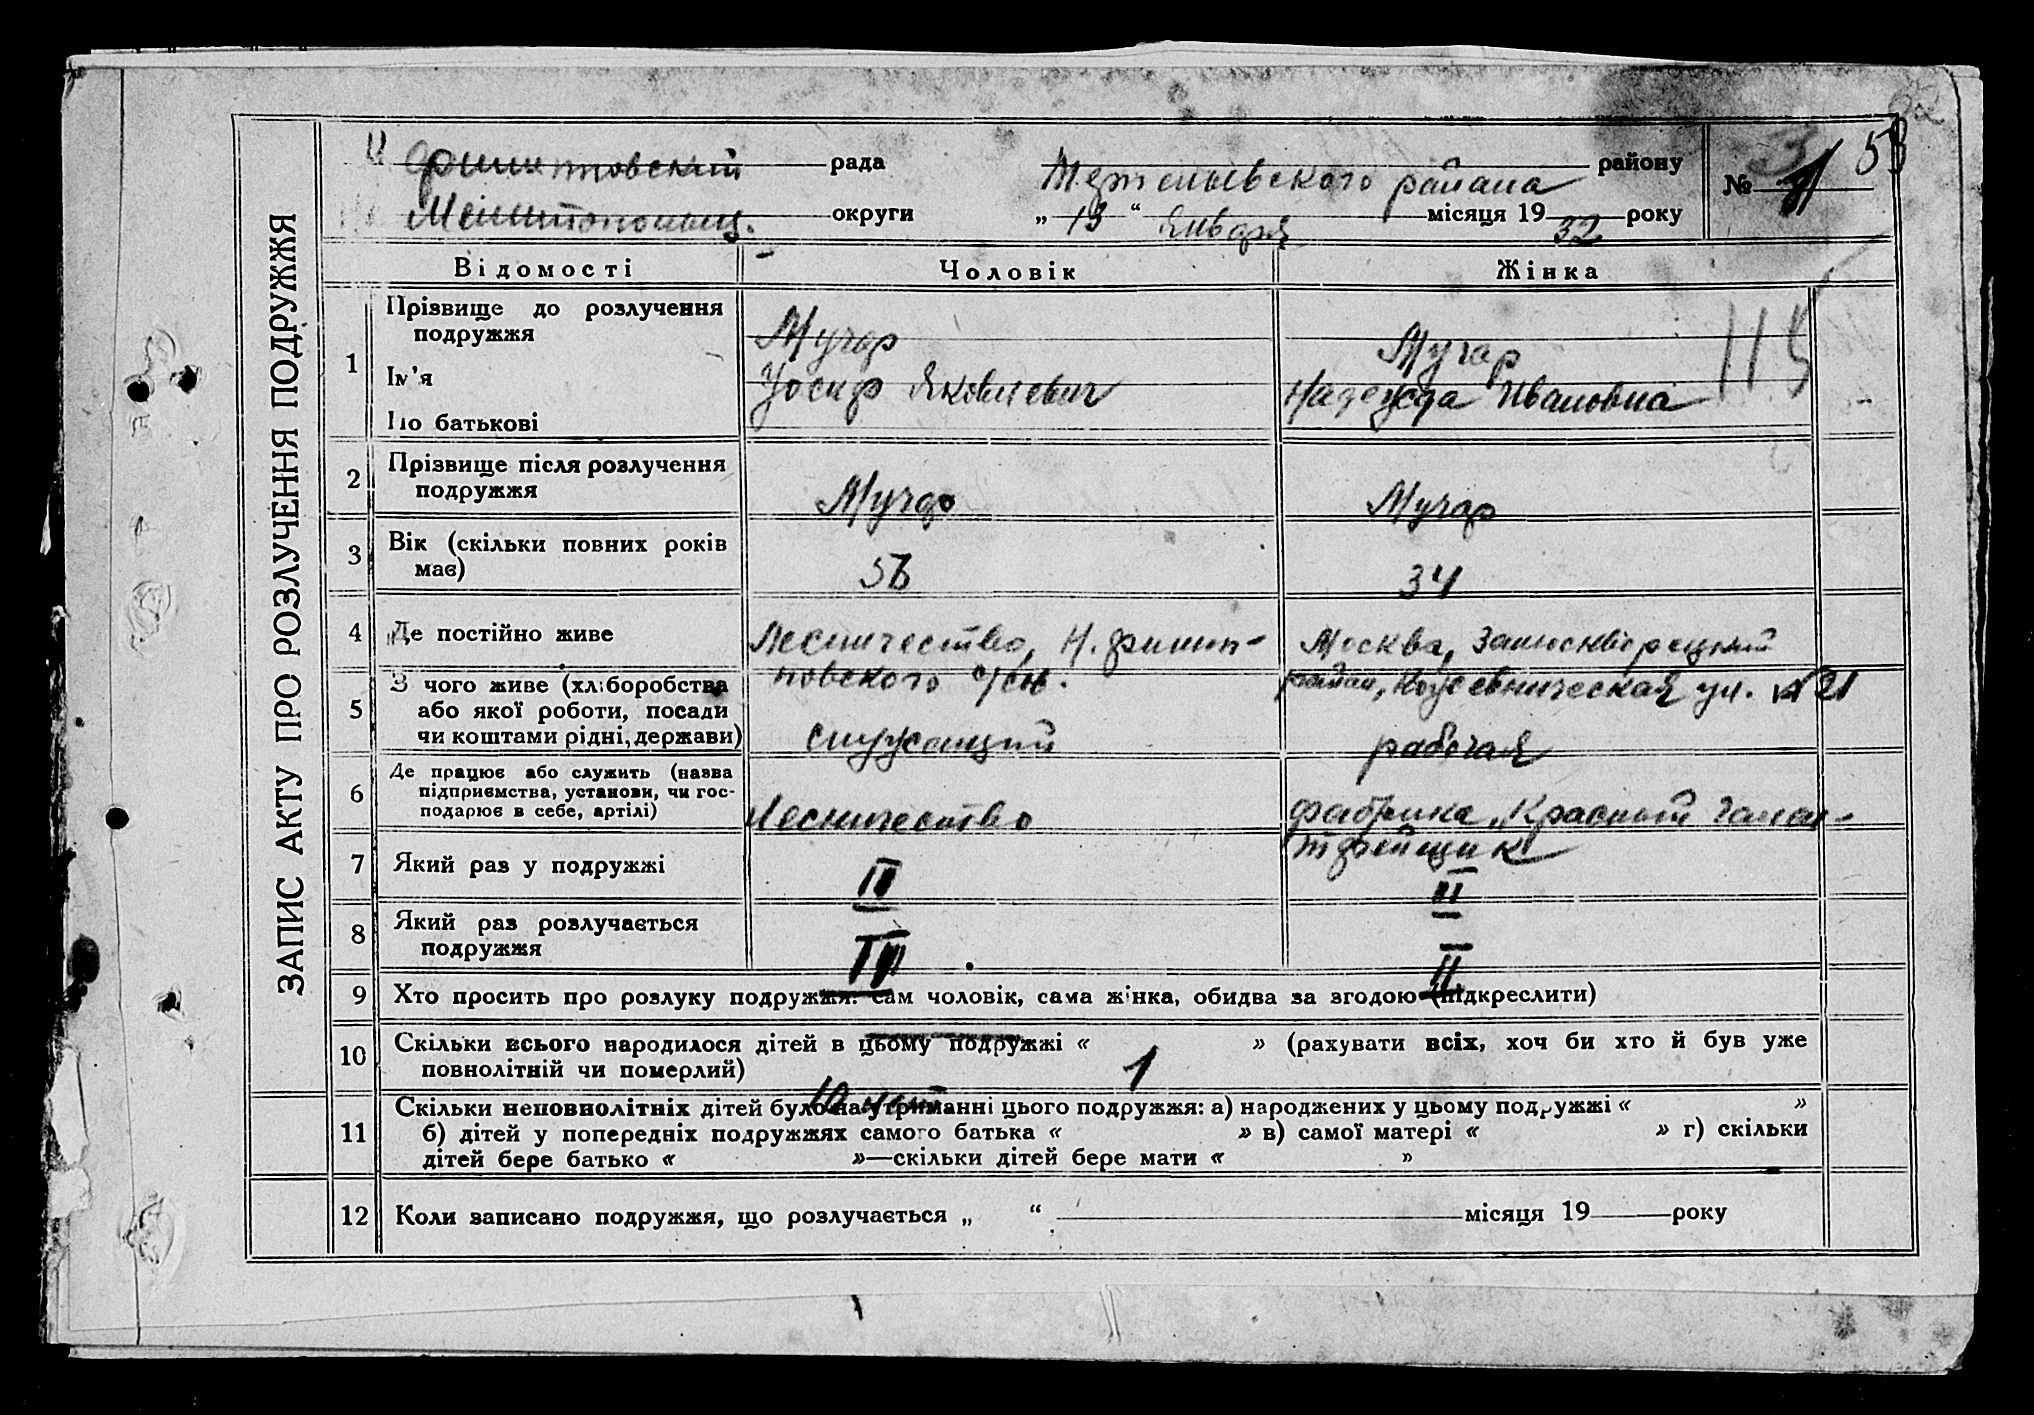 ЗАПИС АКТУ ПРО РОЗЛУЧЕННЯ ПОДРУЖЖЯ
рада
району
№ 53
Мелитопольщ. округи
„ 13 “ Января місяця 19 32 року
района
Відомості Чоловік Жінка
1 Прізвище до розлучення подружжя
Мучар
Мучар
115
Ім'я
Иосиф Яковлевич
Надежда Ивановна
По батькові
2 Прізвище після розлучення подружжя
Мучар
Мучар
3 Вік (скільки повних років має)
34
4 Де постійно живе
Лесничество, Н. Филип-
повского с/сов.
Москва, Замоскворецкий
район, Кожевническая ул. № 21
5 З чого живе (хліборобства
або якої роботи, посади
чи коштами рідні, держави)
служащий
рабочая
6 Де працює або служить (назва
підприємства, установи, чи гос-
подарює в себе, артілі)
Лесничество
фабрика „Красный
7 Який раз у подружжі
IV
II
8 Який раз розлучається
подружжя
IV
II
9 Хто просить про розлуку подружжя: сам чоловік, сама жінка, обидва за згодою (підкреслити)
10 Скільки всього народилося дітей в цьому подружжі « 1 » (рахувати всіх, хоч би хто й був уже
повнолітній чи померлий)
11 Скільки неповнолітніх дітей було на утриманні цього подружжя: а) народжених у цьому подружжі « »
б) дітей у попередніх подружжях самого батька « » в) самої матері « » г) скільки
дітей бере батько « »—скільки дітей бере мати « »
12 Коли записано подружжя, що розлучається „ “ місяця 19 року